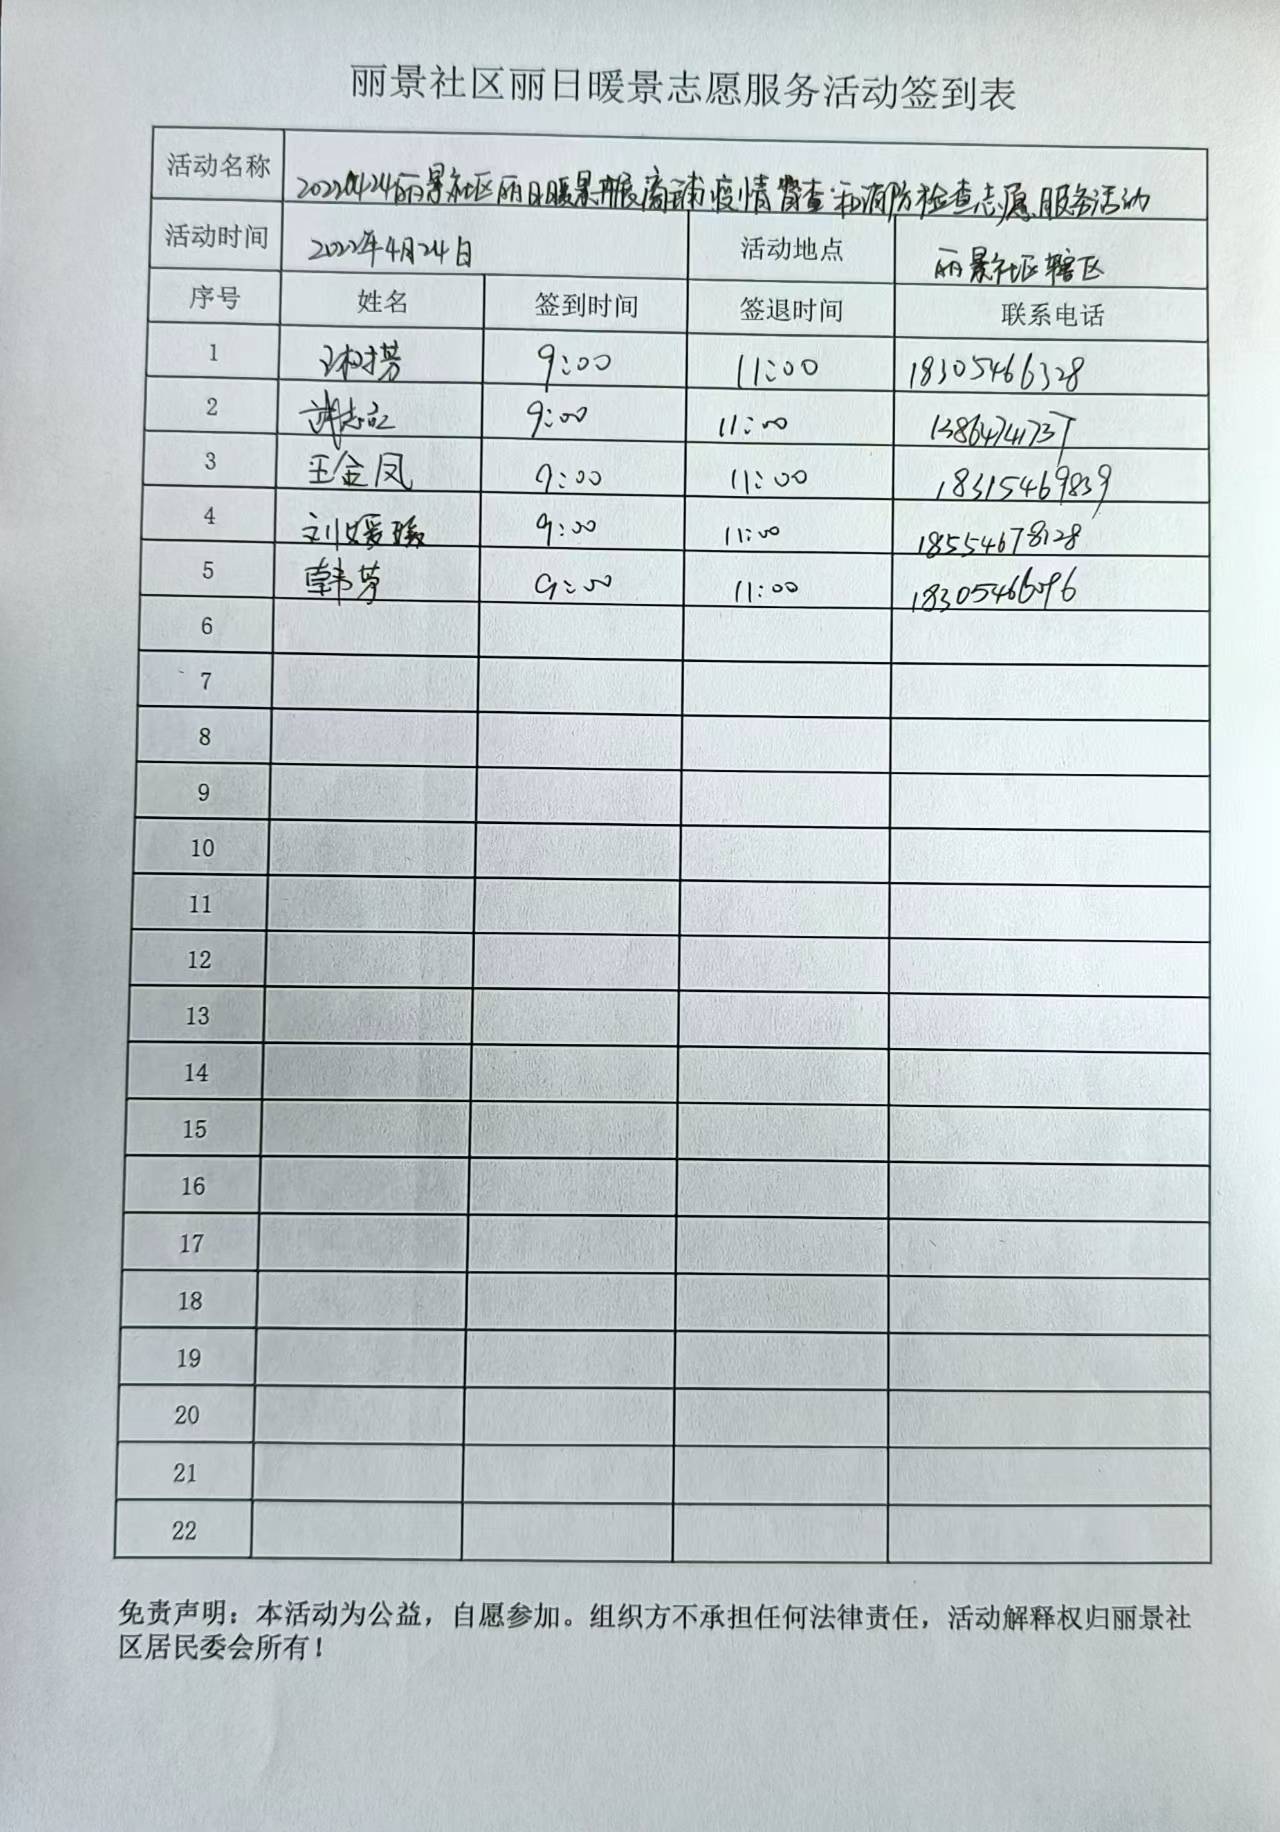 丽景社区丽日暖景志愿服务活动签到表
活动名称 20220424丽景社区丽日暖景开展商铺疫情督查和消防检查志愿服务活动
活动时间 2022年4月24日 活动地点 丽景社区辖区
序号 姓名 签到时间 签退时间 联系电话
1 9:00 11:00 18305466328
2 9:00 11:00
3 王金凤 9:00 11:00 18315469839
4 刘媛媛 9:00 11:00 18554678128
5 韩芳 9:00 11:00 18305466096
6
7
8
9
10
11
12
13
14
15
16
17
18
19
20
21
22
免责声明：本活动为公益，自愿参加。组织方不承担任何法律责任，活动解释权归丽景社
区居民委会所有！